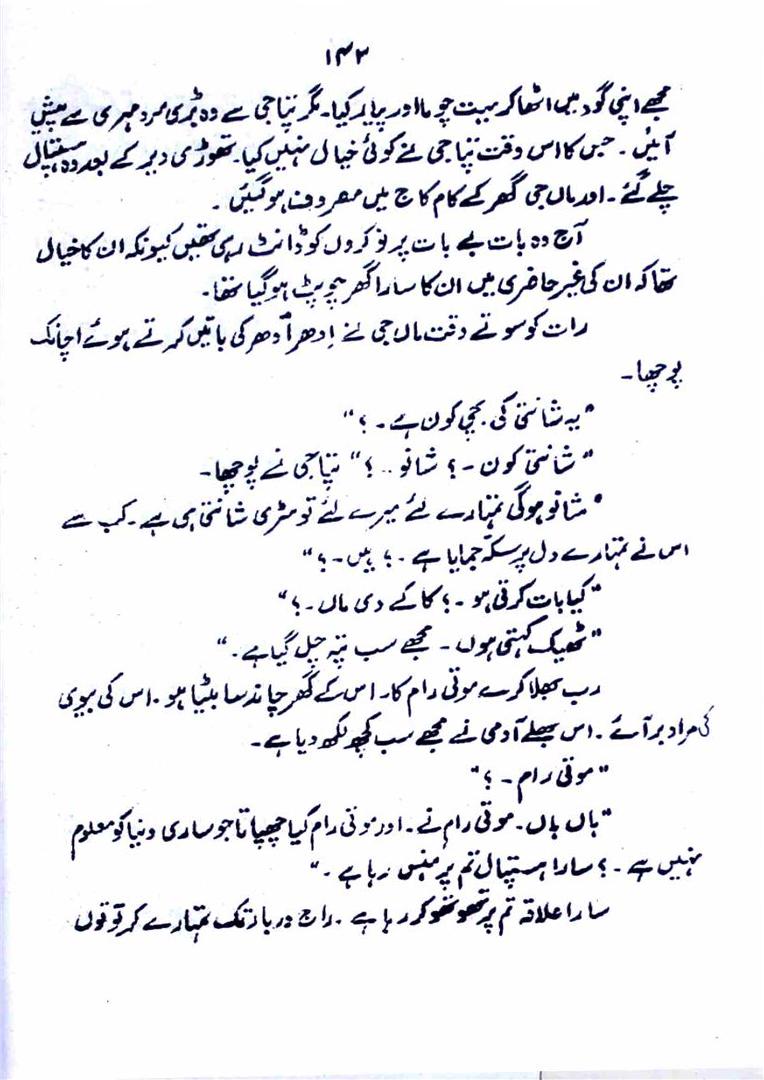 ۱۴۲
مجھے اپنی گود میں اٹھا کر بہت چوما اور پیار کیا۔ مگر پتا جی سے وہ بڑی سرد مہری سے پیش
آئیں ۔ جس کا اس وقت پتا جی نے کوئی خیال نہیں کیا۔ تھوڑی دیر کے بعد وہ ہسپتال
چلے گئے ۔ اور ماں جی گھر کے کام کاج میں مصروف ہو گئیں ۔
آج وہ بات بے بات پر نوکروں کو ڈانٹ رہی تھیں کیونکہ ان کا خیال
تھا کہ ان کی غیر حاضری میں ان کا سارا گھر چوپٹ ہو گیا تھا۔
رات کو سوتے وقت ماں جی نے اِدھر اُدھر کی باتیں کرتے ہوئے اچانک
پوچھا۔
"یہ شانتی کی بچی کون ہے ۔ ؟"
"شانتی کون ۔ ؟ شانو .. ؟" پتا جی نے پوچھا۔
"شانو ہوگی تمہارے لئے میرے لئے تو مڑی شانتی ہی ہے ۔ کب سے
اس نے تمہارے دل پر سکہ جمایا ہے ۔ ؟ ہیں ۔ ؟"
"کیا بات کرتی ہو ۔ ؟ کاکے دی ماں ۔ ؟"
"ٹھیک کہتی ہوں ۔ مجھے سب پتہ چل گیا ہے ۔"
رب بھلا کرے موتی رام کا۔ اس کے گھر چاند سا بیٹا ہو ۔ اس کی بیوی
کی مراد بر آئے ۔ اس بھلے آدمی نے مجھے سب کچھ لکھ دیا ہے ۔
"موتی رام ۔ ؟"
"ہاں ہاں ۔ موتی رام نے ۔ اور موتی رام کیا چھپاتا جو ساری دنیا کو معلوم
نہیں ہے ۔ ؟ سارا ہسپتال تم پر ہنس رہا ہے ۔"
سارا علاقہ تم پر تھو تھو کر رہا ہے ۔ راج دربار تک تمہارے کرتوتوں